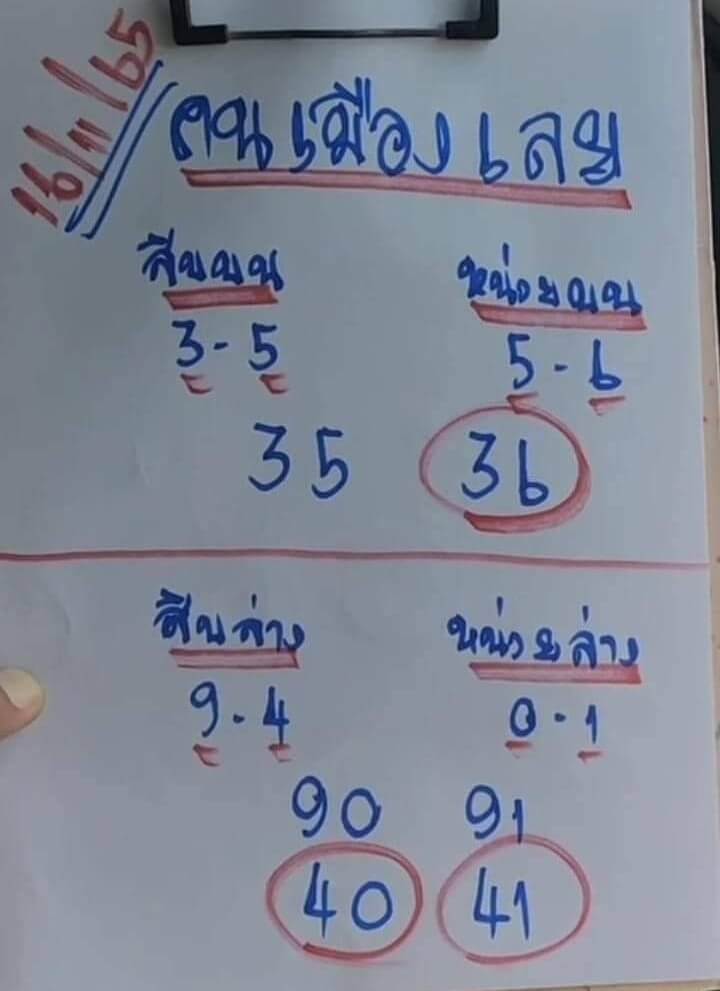 16/11/65
คนเมืองเลย
สิบบน หน่วยบน
3-5 5-6
35 36
สิบล่าง หน่วยล่าง
9-4 0-1
90 91
40 41